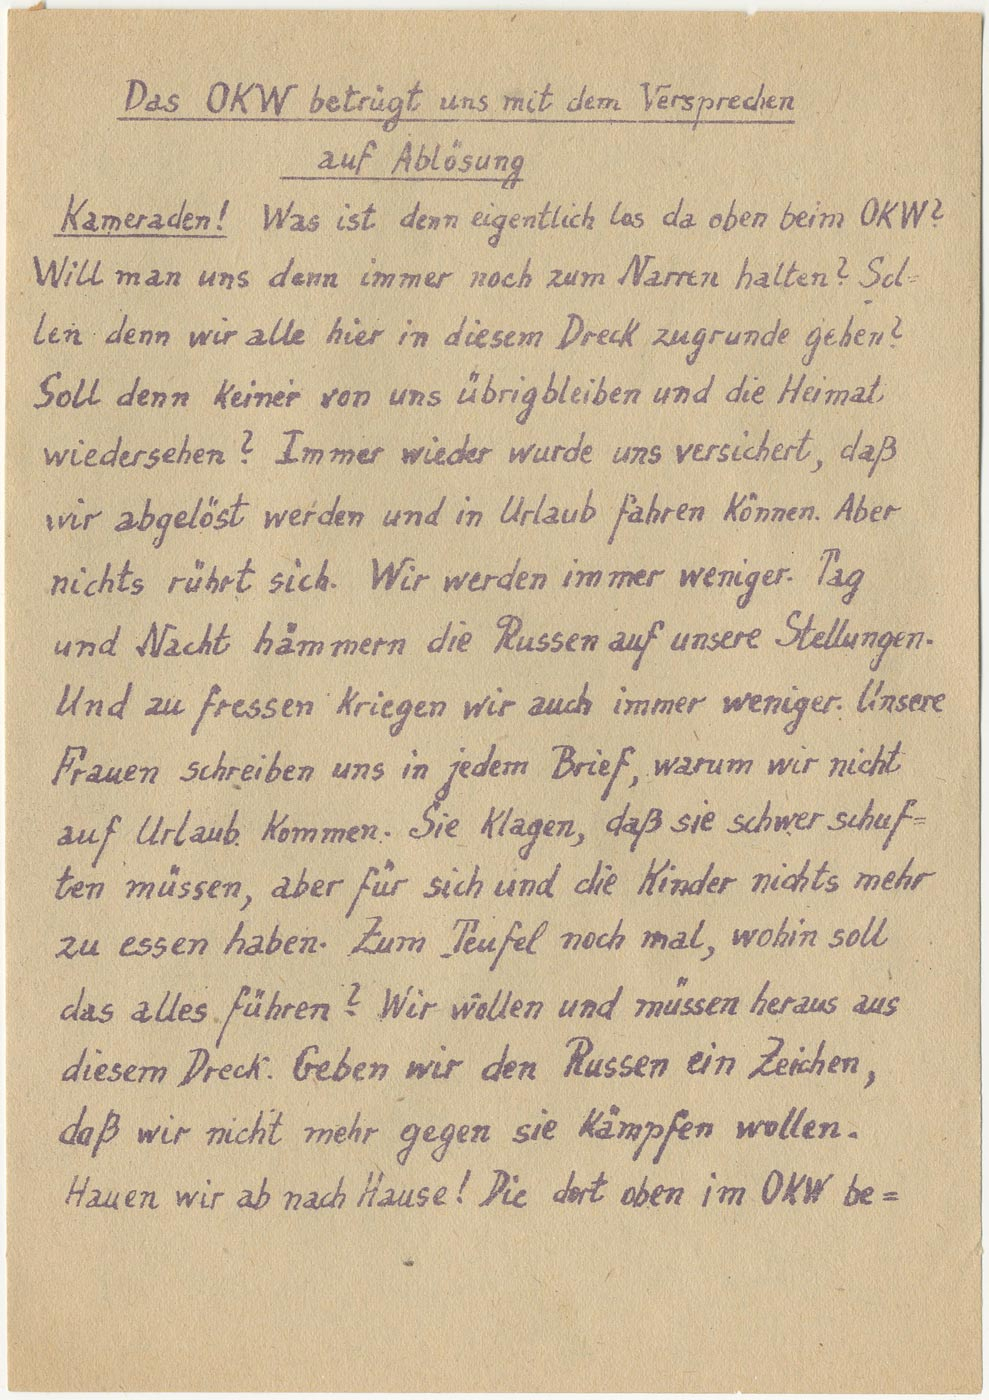 Das OKW betrügt uns mit dem Versprechen
auf Ablösung
Kameraden! Was ist denn eigentlich los da oben beim OKW?
Will man uns denn immer noch zum Narren halten? Sol=
len denn wir alle hier in diesem Dreck zugrunde gehen?
Soll denn keiner von uns übrigbleiben und die Heimat
wiedersehen? Immer wieder wurde uns versichert, daß
wir abgelöst werden und in Urlaub fahren können. Aber
nichts rührt sich. Wir werden immer weniger. Tag
und Nacht hämmern die Russen auf unsere Stellungen.
Und zu fressen kriegen wir auch immer weniger. Unsere
Frauen schreiben uns in jedem Brief, warum wir nicht
auf Urlaub kommen. Sie klagen, daß sie schwer schuf=
ten müssen, aber für sich und die Kinder nichts mehr
zu essen haben. Zum Teufel noch mal, wohin soll
das alles führen? Wir wollen und müssen heraus aus
diesem Dreck. Geben wir den Russen ein Zeichen,
daß wir nicht mehr gegen sie kämpfen wollen.
Hauen wir ab nach Hause! Die dort oben im OKW be=